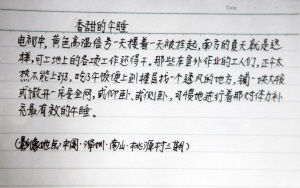 香甜的午睡
电视中,黄色高温信号一天接着一天被挂起,南方的夏天就是这
样,可工地上的各项工作还得干。那些在室外作业的工人们,正午太
热不能上班,吃了午饭便上到楼层找一个通风的地方,铺一块夹板
或散开一床安全网,或仰卧、或侧卧,习惯地进行着那对体力补
充最有效的午睡。
(影像地点:中国·深圳·南山·桃源村三期)